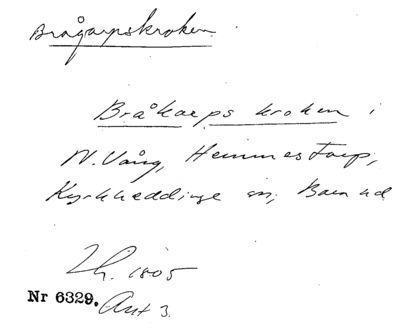 Brågarpskroken
Bråkarps kroken i
N. Vång, Hemmestorp,
Kyrkheddinge sn, Bara hd
Lh. 1805
Nr 6329. Akt 3.